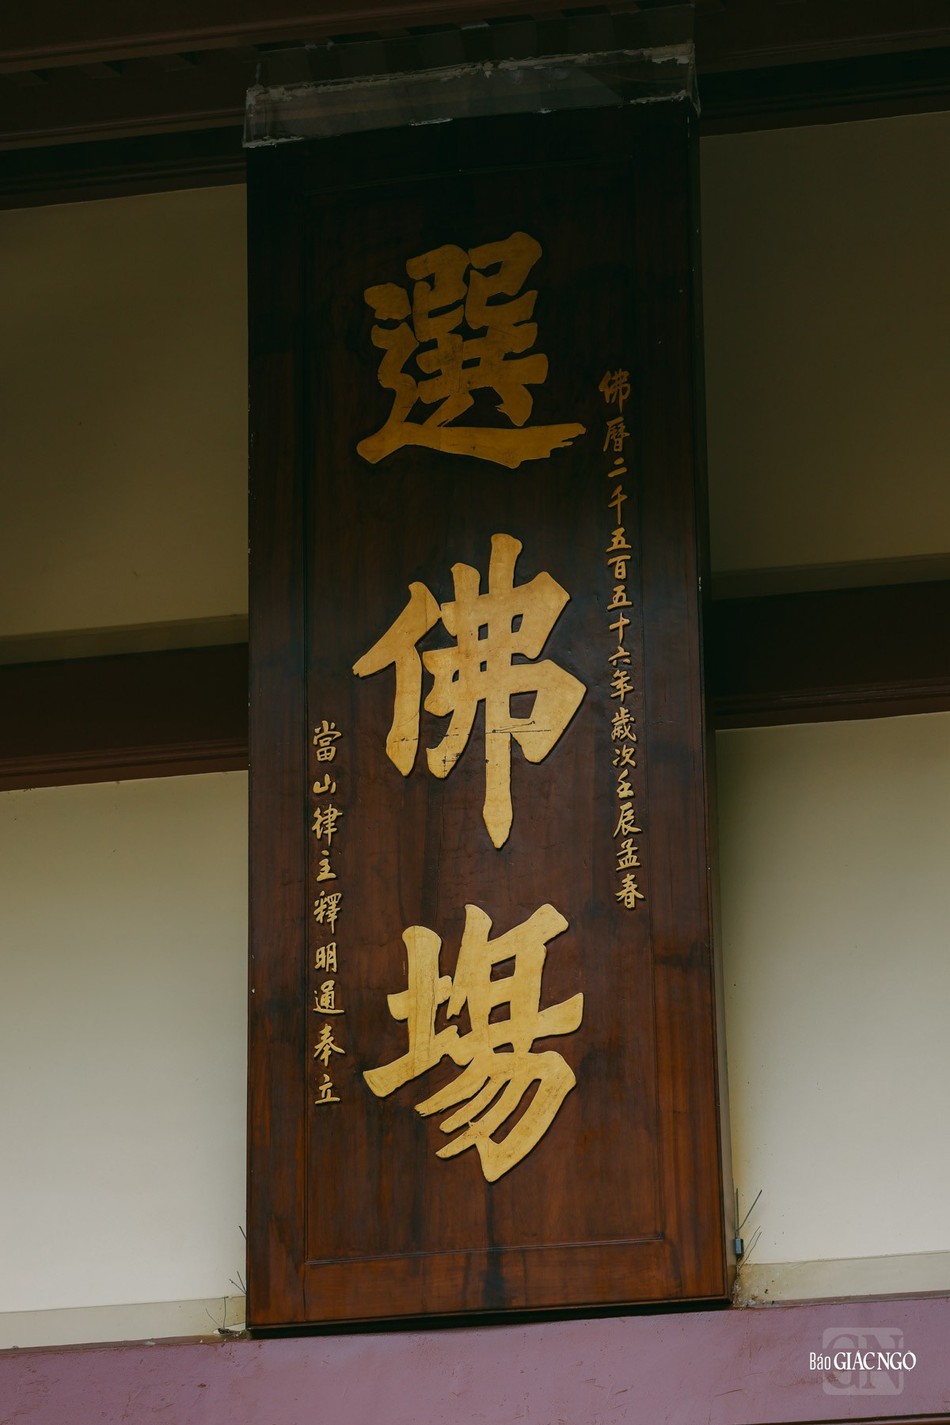 佛曆二千五百五十六年歲次壬辰孟春
選佛場
當山律主釋明通奉立
Báo GIÁC NGỘ
GN